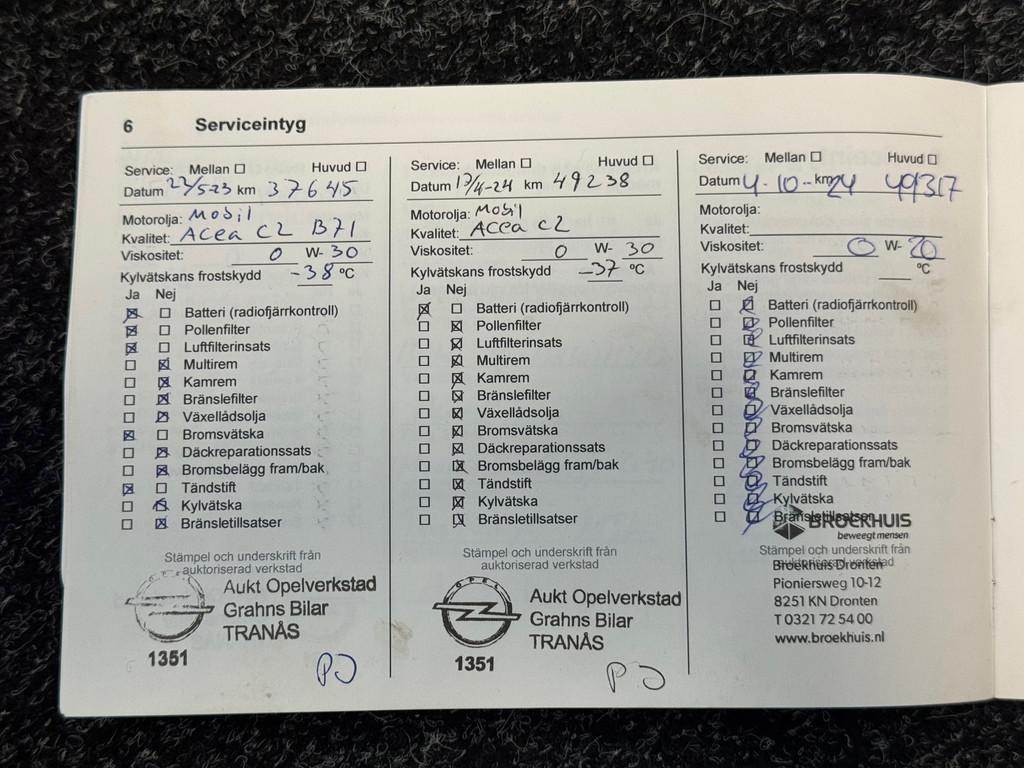 6 Serviceintyg
Service: Mellan ☐ Huvud ☐
Datum 23/5-23 km 37645
Motorolja: Mobil
Kvalitet: Acea C2 B71
Viskositet: 0 W- 30
Kylvätskans frostskydd -38 °C
Ja Nej
☒ ☐ Batteri (radiofjärrkontroll)
☒ ☐ Pollenfilter
☒ ☐ Luftfilterinsats
☐ ☒ Multirem
☐ ☒ Kamrem
☐ ☒ Bränslefilter
☐ ☒ Växellådsolja
☒ ☐ Bromsvätska
☐ ☒ Däckreparationssats
☐ ☒ Bromsbelägg fram/bak
☒ ☐ Tändstift
☐ ☒ Kylvätska
☐ ☒ Bränsletillsatser
Stämpel och underskrift från
auktoriserad verkstad
OPEL
Aukt Opelverkstad
Grahns Bilar
TRANÅS
1351
PJ
Service: Mellan ☐ Huvud ☐
Datum 17/4-24 km 49238
Motorolja: Mobil
Kvalitet: Acea C2
Viskositet: 0 W- 30
Kylvätskans frostskydd -37 °C
Ja Nej
☒ ☐ Batteri (radiofjärrkontroll)
☐ ☒ Pollenfilter
☐ ☒ Luftfilterinsats
☐ ☒ Multirem
☐ ☒ Kamrem
☐ ☒ Bränslefilter
☐ ☒ Växellådsolja
☐ ☒ Bromsvätska
☐ ☒ Däckreparationssats
☐ ☒ Bromsbelägg fram/bak
☐ ☒ Tändstift
☐ ☒ Kylvätska
☐ ☒ Bränsletillsatser
Stämpel och underskrift från
auktoriserad verkstad
OPEL
Aukt Opelverkstad
Grahns Bilar
TRANÅS
1351
PJ
Service: Mellan ☐ Huvud ☐
Datum 4-10-24 km 49317
Motorolja:
Kvalitet:
Viskositet: 0 W- 20
Kylvätskans frostskydd °C
Ja Nej
☐ ☒ Batteri (radiofjärrkontroll)
☐ ☒ Pollenfilter
☐ ☒ Luftfilterinsats
☐ ☒ Multirem
☐ ☒ Kamrem
☐ ☒ Bränslefilter
☐ ☒ Växellådsolja
☐ ☒ Bromsvätska
☐ ☒ Däckreparationssats
☐ ☒ Bromsbelägg fram/bak
☐ ☒ Tändstift
☐ ☒ Kylvätska
☐ ☒ Bränsletillsatser
BROEKHUIS
beweegt mensen
Stämpel och underskrift från
auktoriserad verkstad
Broekhuis Dronten
Pioniersweg 10-12
8251 KN Dronten
T 0321 72 54 00
www.broekhuis.nl